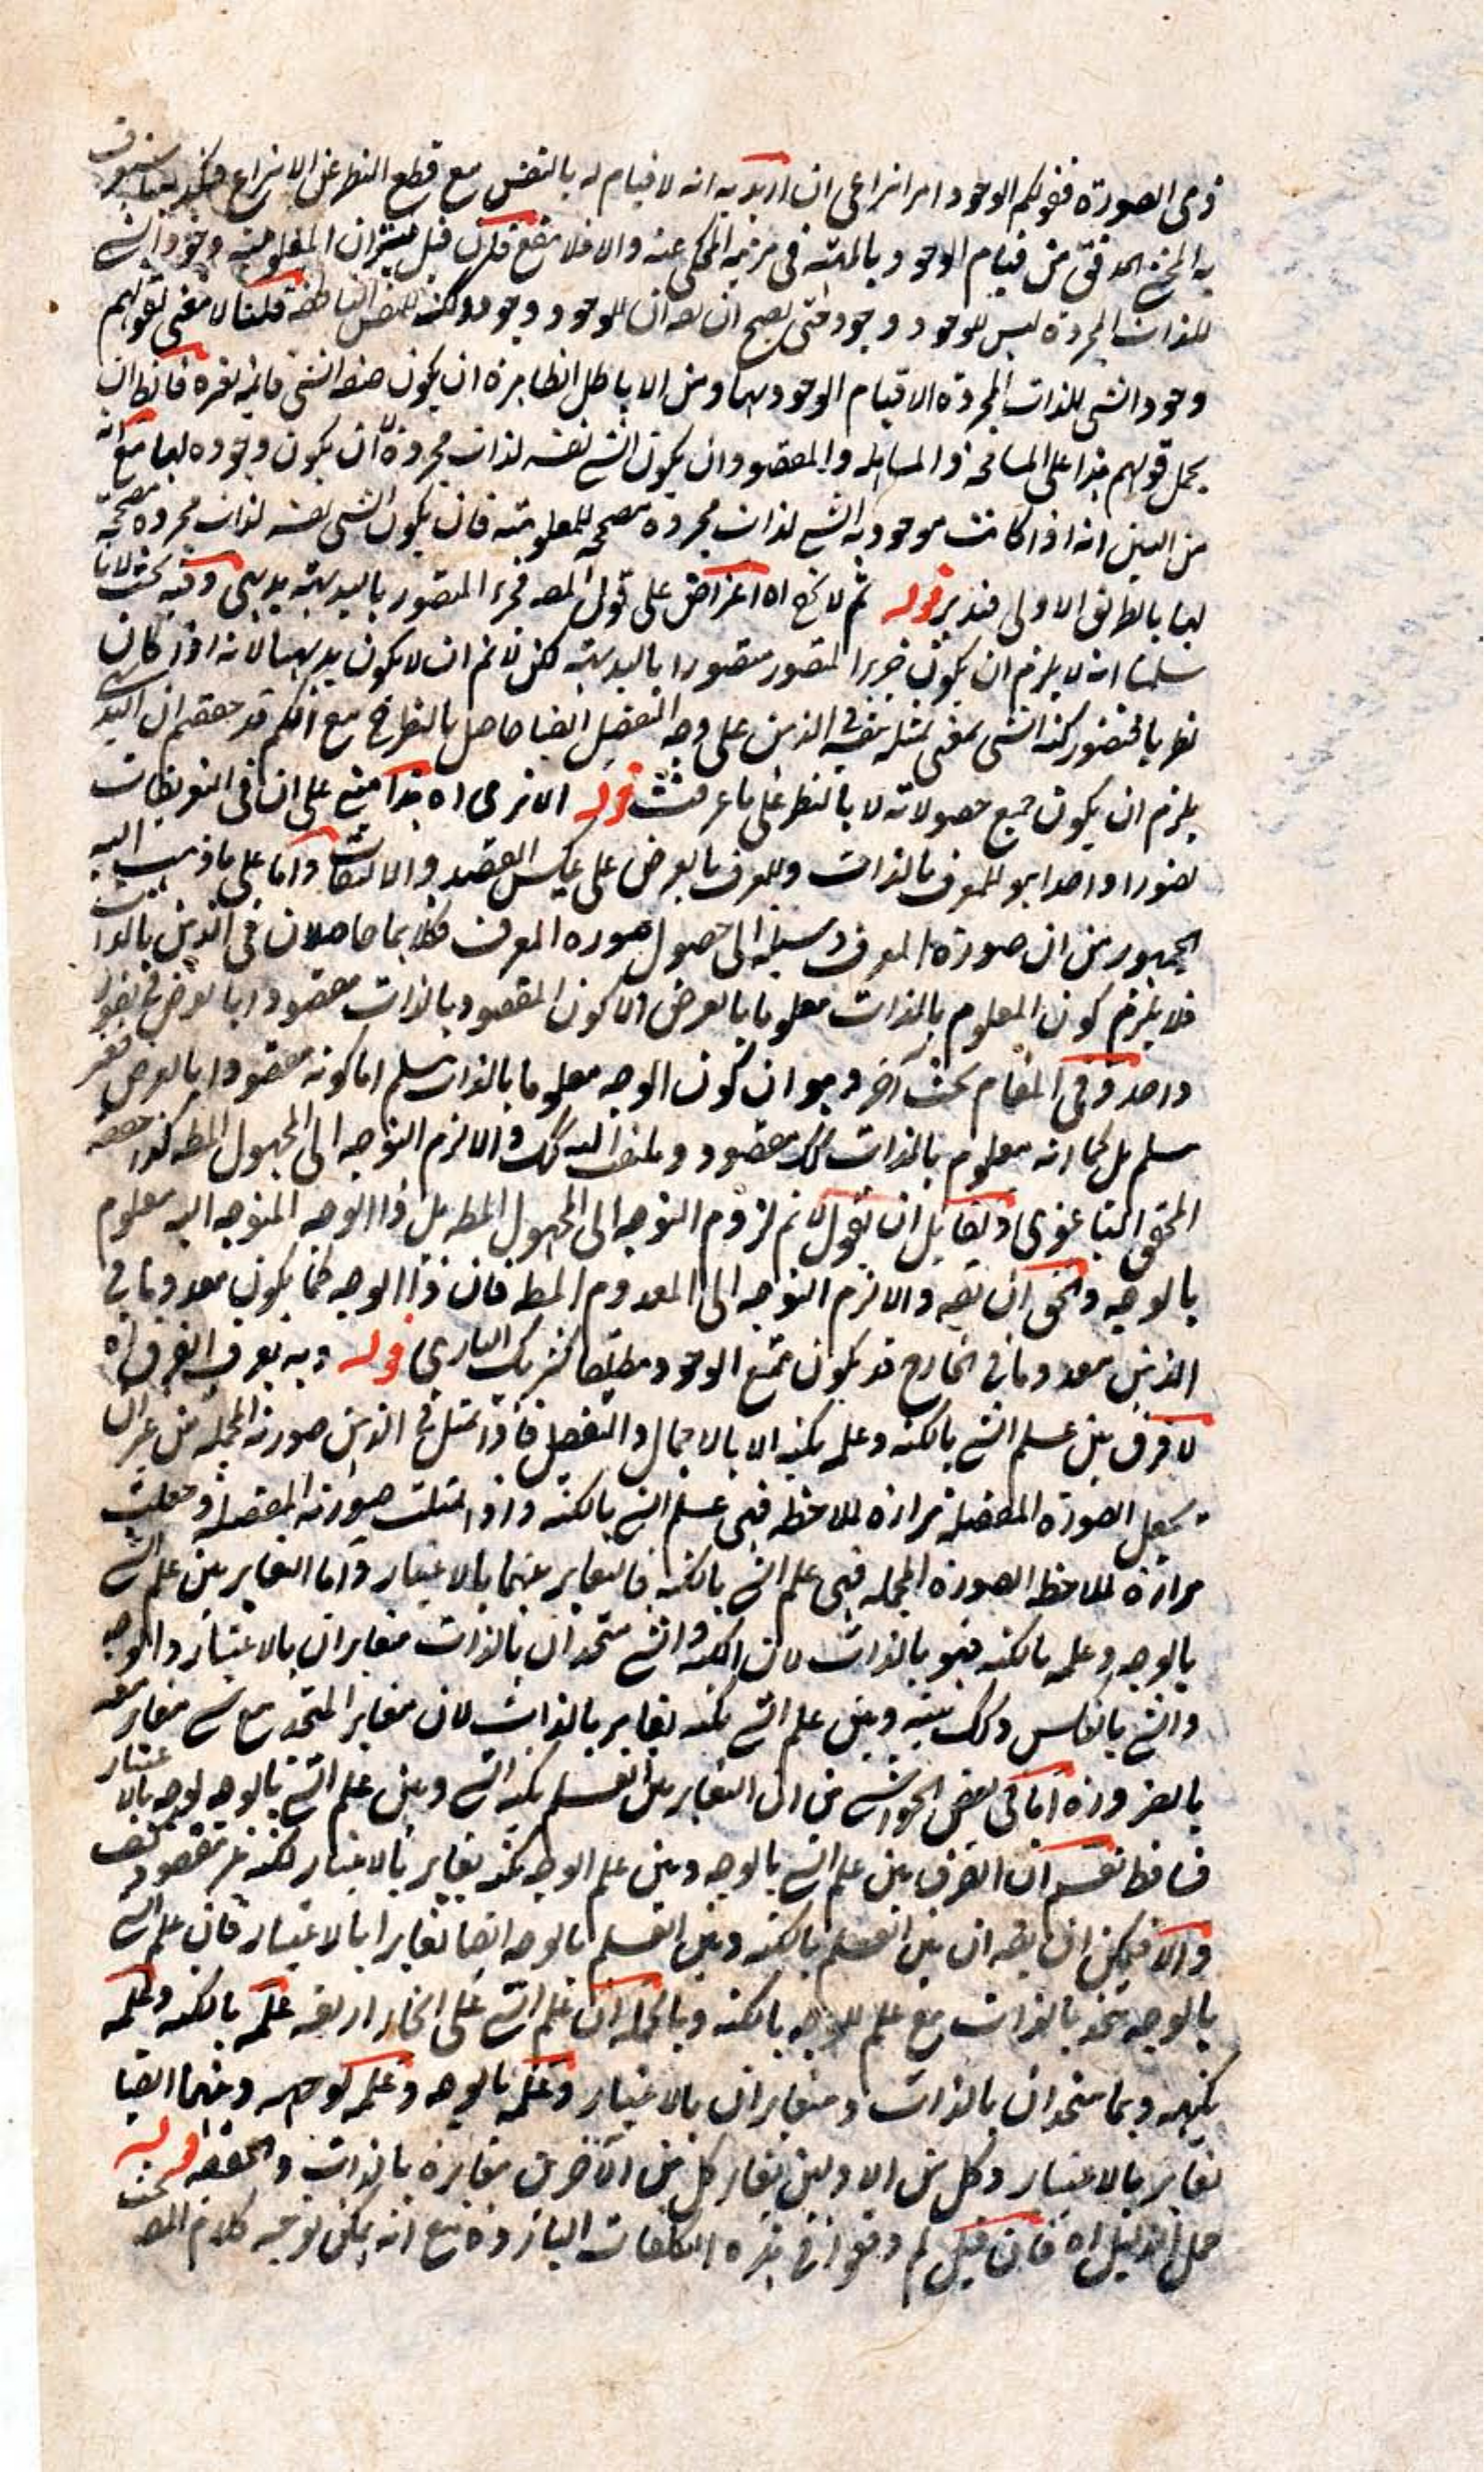 ذى الصورة فقولكم الوجود امر انتزاعى ان اريد به انه لا قيام له بالنفس مع قطع النظر عن الانتزاع
من قيام الوجود بالمهية فى مرتبة المحكى عنه والا فلا ينفع فان قيل ان المعلومية وجود الشى
للذات المجردة ليس للوجود وجود حتى يصح ان يقه ان للوجود وجودا ولكنه للنفس الناطقة قلنا لا معنى لقولهم
وجود الشى للذات المجردة الا قيام الوجود بها ومن الاباطيل الظاهرة ان يكون صفة الشى قائمة بغيره فالظ ان
يحمل قولهم هذا على المسامحة والمساهلة والمقصود ان يكون الشى نفسه لذات مجردة لا ان يكون وجوده لها مع انه
من البين انه اذا كانت موجودية الشى لذات مجردة مصححة للمعلومية فان يكون الشى نفسه لذات مجردة مصححة
لها بالطريق الاولى فتدبر قوله ثم لا يخ اه اعتراض على قول المصه فجزء المتصور بالبديهة بديهى وفيه بحث لانا
سلمنا انه لا يلزم ان يكون جزء المتصور متصورا بالبديهة لكن لانم ان لا يكون بديهيا لانه اذا كان
نظريا فتصور كنه الشى بمعنى تمثله بنفسه فى الذهن على وجه التفصيل ايضا حاصل بالنظر فح مع انكم قد حققتم ان البديهى
يلزم ان يكون جميع حصولاته لا بالنظر على ما عرفت قوله الا ترى اه هذا مبنى على ان فى التعريفات
تصورا واحدا هو للمعرف بالذات وللمعرف بالعرض على عكس القصد والالتفات واما على ما ذهب اليه
الجمهور من ان صورة المعرف وسيلة الى حصول صورة المعرف فكلاهما حاصلان فى الذهن بالذات
فلا يلزم كون المعلوم بالذات معلوما بالعرض ولا كون المقصود بالذات مقصودا بالعرض فى تصور
واحد وفى المقام بحث آخر وهو ان كون الوجه معلوما بالذات مسلم اما كونه مقصودا بالعرض فغير
مسلم بل كما انه معلوم بالذات كك مقصود وملتفت اليه كك والا لزم التوجه الى المجهول المطه كذا حققه
المحقق الباغنوى ولقائل ان يقول لانم لزوم التوجه الى المجهول المطه بل ذا الوجه المتوجه اليه معلوم
بالوجه والحق ان يقه والا لزم التوجه الى المعدوم المطه فان ذا الوجه كما يكون معدوما فى
الذهن معدوما فى الخارج قد يكون ممتنع الوجود مطلقا كشريك البارى قوله وبه يعرف الفرق اه
لا فرق بين علم الشى بالكنه وعلمه بكنهه الا بالاجمال والتفصيل فاذا تمثل فى الذهن صورته المجملة من غير ان
يجعل الصورة المفصلة مرآة للملاحظة فهى علم الشى بالكنه واذا تمثلت صورته المفصلة وجعلت
مرآة لملاحظة الصورة المجملة فهى علم الشى بالكنه فالتغاير بينهما بالاعتبار واما التغاير بين علم الشى
بالوجه وعلمه بالكنه فهو بالذات لان الكنه والشى متحدان بالذات متغايران بالاعتبار والوجه
والشى بالعكس وكك بينه وبين علم الشى بكنهه تغاير بالذات لان مغاير المتحد مع شى مغاير معه
بالضرورة اما فى بعض الحواشى من ان التغاير بين العلم بكنه الشى وبين علم الشى بالوجه لوجه بالاعتبار
فساقط نعم ان الفرق بين علم الشى بالوجه وبين علم الوجه بكنهه تغاير بالاعتبار لكنه غير مقصود
والا فيمكن ان يقه ان بين العلم بالكنه وبين العلم بالوجه ايضا تغايرا بالاعتبار فان علم الشى
بالوجه متحد بالذات مع علم الوجه بالكنه وبالجملة ان علم الشى على انحاء اربعة علمه بالكنه وعلمه
بكنهه وهما متحدان بالذات ومتغايران بالاعتبار وعلمه بالوجه وعلمه بوجهه وبينهما ايضا
تغاير بالاعتبار وكل من الاولين يغاير كل من الآخرين مغايرة بالذات قوله
حمل الدليل اه فان قيل لم وقعوا فى هذه التكلفات الباردة مع انه يمكن توجيه كلام المصه